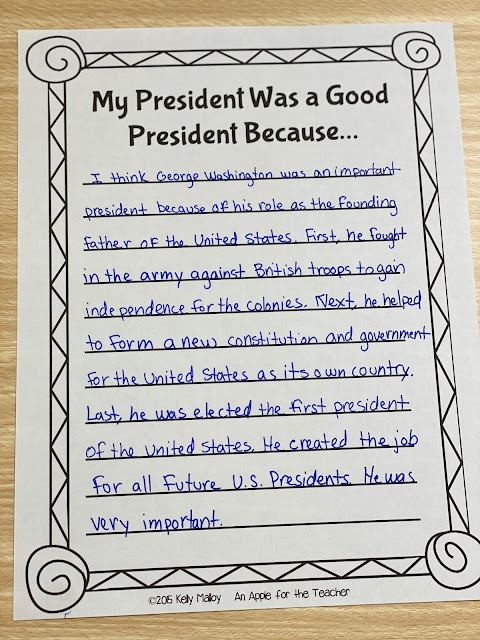 My President Was a Good
President Because...
I think George Washington was an important
president because of his role as the founding
father of the United States. First, he fought
in the army against British troops to gain
independence for the colonies. Next, he helped
to form a new constitution and government
for the United States as its own country.
Last, he was elected the first president
of the United States. He created the job
for all future U.S. Presidents. He was
very important.
©2015 Kelly Malloy An Apple for the Teacher